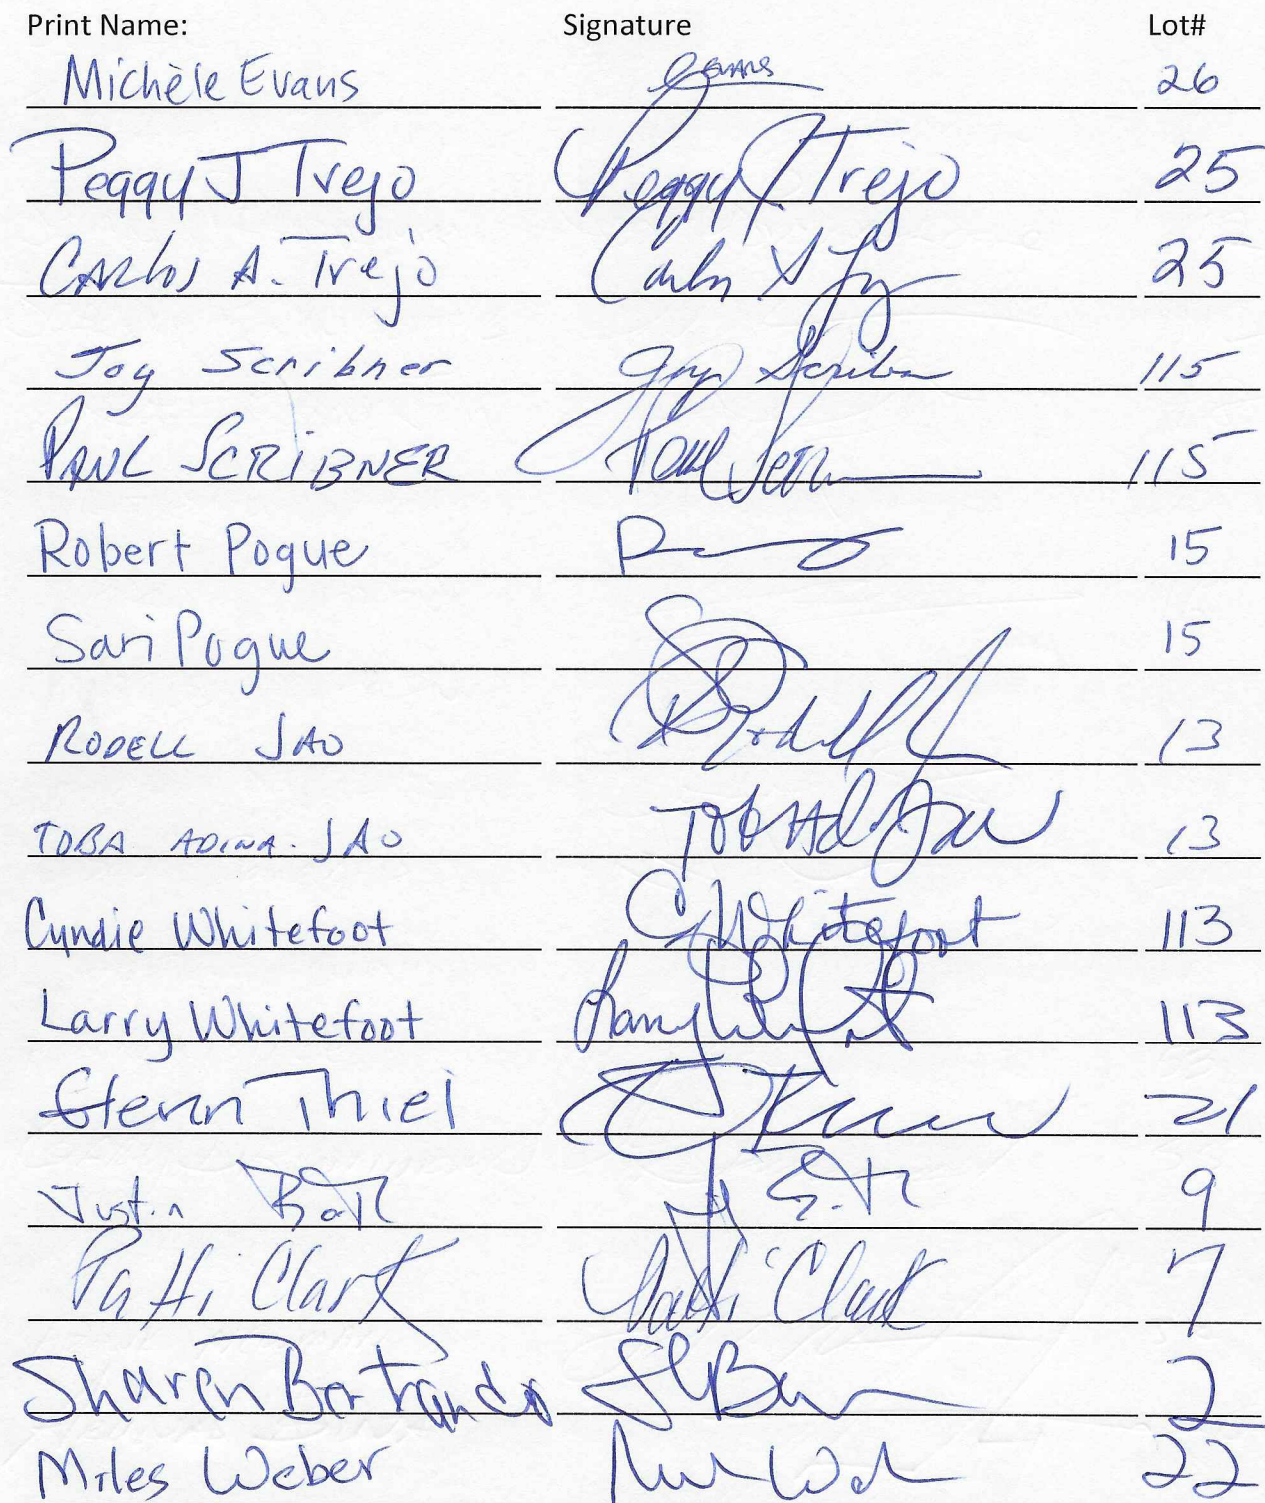 Print Name: Signature Lot#
Michèle Evans Evans 26
Peggy J Trejo Peggy J Trejo 25
Carlos A. Trejo Carlos A 25
Joy Scribner Joy Scribner 115
PAUL SCRIBNER Paul 115
Robert Pogue 15
Sari Pogue 15
RODELL JAO Rodell 13
TOBA ADINA JAO 13
Cyndie Whitefoot C Whitefoot 113
Larry Whitefoot Larry 113
Glenn Thiel 21
Justin 9
Patti Clark Patti Clark 7
Sharon Bertrando 2
Miles Weber 22